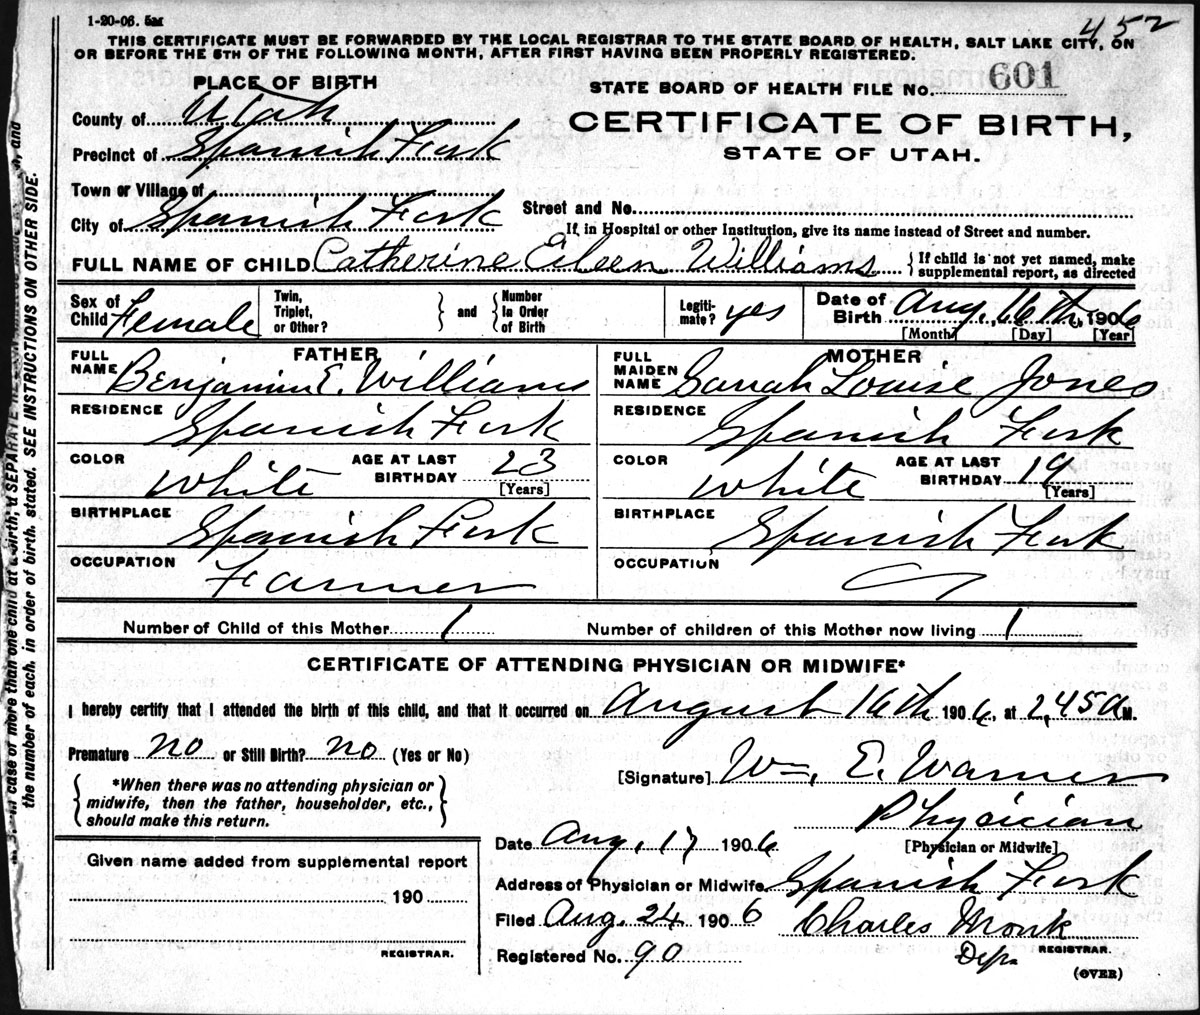 1-20-06. 5M
452
THIS CERTIFICATE MUST BE FORWARDED BY THE LOCAL REGISTRAR TO THE STATE BOARD OF HEALTH, SALT LAKE CITY, ON
OR BEFORE THE 5TH OF THE FOLLOWING MONTH, AFTER FIRST HAVING BEEN PROPERLY REGISTERED:
PLACE OF BIRTH
STATE BOARD OF HEALTH FILE No. 601
County of Utah
CERTIFICATE OF BIRTH,
Precinct of Spanish Fork
STATE OF UTAH.
Town or Village of
City of Spanish Fork
Street and No.
If, in Hospital or other Institution, give its name instead of Street and number.
FULL NAME OF CHILD Catherine Eileen Williams { If child is not yet named, make supplemental report, as directed
Sex of Child Female
Twin, Triplet, or Other? } and { Number in Order of Birth
Legitimate? yes
Date of Birth Aug. 16th, 1906
[Month] [Day] [Year]
FATHER
FULL NAME Benjamin E. Williams
RESIDENCE Spanish Fork
COLOR White AGE AT LAST BIRTHDAY 23 [Years]
BIRTHPLACE Spanish Fork
OCCUPATION Farmer
MOTHER
FULL MAIDEN NAME Sarah Louise Jones
RESIDENCE Spanish Fork
COLOR White AGE AT LAST BIRTHDAY 19 [Years]
BIRTHPLACE Spanish Fork
OCCUPATION
Number of Child of this Mother 1
Number of children of this Mother now living 1
CERTIFICATE OF ATTENDING PHYSICIAN OR MIDWIFE*
I hereby certify that I attended the birth of this child, and that it occurred on August 16th 1906, at 2,45 A M.
Premature no or Still Birth? no (Yes or No)
*When there was no attending physician or
midwife, then the father, householder, etc.,
should make this return.
[Signature] Wm. E. Warner
Physician
[Physician or Midwife]
Date Aug. 17 1906
Address of Physician or Midwife Spanish Fork
Filed Aug. 24 1906 Charles Monk
Registered No. 90 Dep. REGISTRAR.
(OVER)
Given name added from supplemental report
190
REGISTRAR.
in case of more than one child at a birth, a SEPARATE
the number of each, in order of birth, stated. SEE INSTRUCTIONS ON OTHER SIDE.